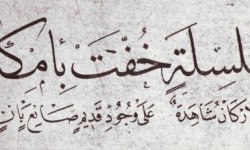 لسِلَةٍ حُفَّتْ بِامكا
ركان شاهدة على وجود قديم صانع بان